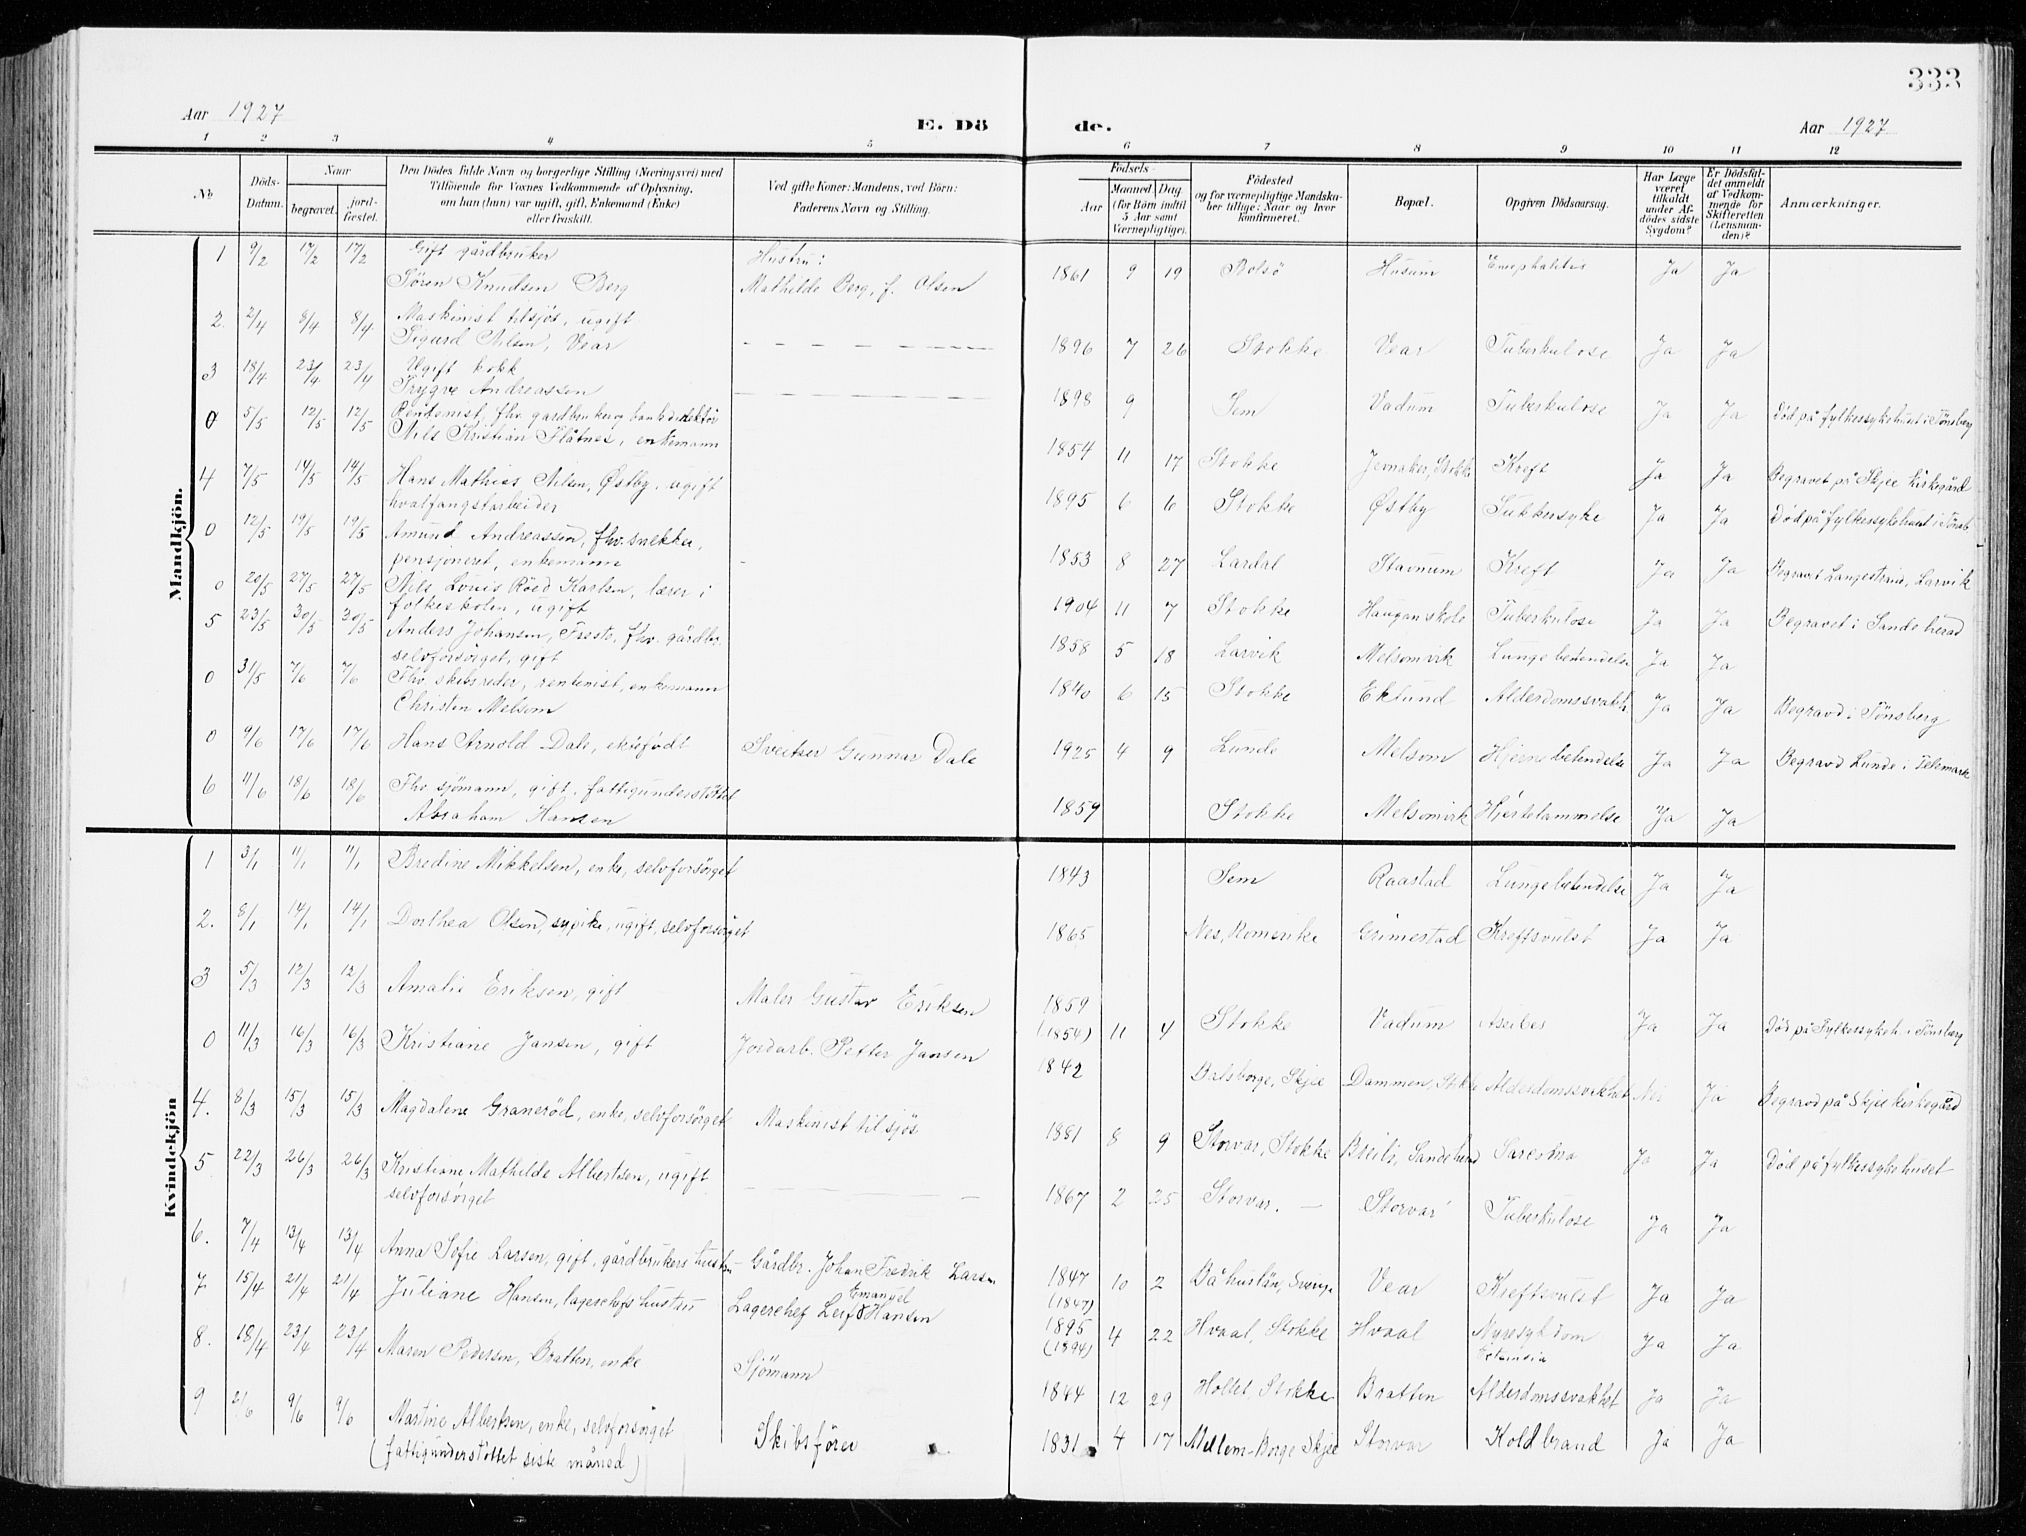 333
Aar 1927
E. Dö de.
Aar 1927
1 2 3 4 5 6 7 8 9 10 11 12
No
Döds-Datum.
Naar
begravet. jord-fæstet.
Den Dödes fulde Navn og borgerlige Stilling (Næringsvei) med
Tilföiende for Voxnes Vedkommende af Oplysning,
om han (hun) var ugift, gift, Enkemand (Enke)
eller fraskilt.
Ved gifte Koner: Mandens, ved Börn:
Faderens Navn og Stilling.
Födsels-
Aar Maaned. Dag.
(for Börn indtil
5 Aar samt
Værnepligtige).
Födested
og for værnepligtige Mandska-
ber tillige: Naar og hvor
konfirmeret.
Bopæl.
Opgiven Dödsaarsag.
Har Læge
været
tilkaldt
under Af-
dödes sidste
Sygdom?
Er Dödsfal-
det anmeldt
af Vedkom-
mende for
Skifteretten
(Lensman-
den)?
Anmærkninger.
Mandkjön.
1 9/2 17/2 17/2 Gift gårdbruker Hustru:
Sören Knudsen Berg Mathilde Berg, f. Olsen 1861 9 19 Bolsö Husum Encephalitis Ja Ja
2. 2/4 8/4 8/4 Maskinist tilsjös, ugift
Sigurd Nilsen, Vear 1896 7 26 Stokke Vear Tuberkulose Ja Ja
3 18/4 23/4 23/4 Ugift kokk
Trygve Andreassen 1898 9 Sem Vadum Tuberkulose Ja Ja Död på fylkessykehuset i Tönsberg
0 5/5 12/5 12/5 Rentenist, fhv. gardbruker og bankdirektör
Nils Kristian Flåtnes, enkemann 1854 11 17 Stokke Jernaker, Stokke Kreft Ja Ja Begravet på Skjee kirkegård
4 7/5 14/5 14/5 Hans Mathias Nilsen, Østby, ugift
hvalfangstarbeider 1895 6 6 Stokke Østby Sukkersyke Ja Ja Död på fylkessykehuset i Tönsb.
0 12/5 19/5 19/5 Amund Andreassen, fhv. snekker,
pensjoneret, enkemann 1853 8 27 Lardal Stavnum Kreft Ja Ja Begravd Langestrand, Larvik
0 20/5 27/5 27/5 Nils Louis Röed Karlsen, lærer i
folkeskolen, ugift 1904 11 7 Stokke Haugan skole Tuberkulose Ja Ja Begravet i Sandeherad
5 23/5 30/5 30/5 Anders Johansen, Freste, fhv. gårdbr.
selvforsörget, gift 1858 5 18 Larvik Melsomvik Lungebetendelse Ja Ja
0 31/5 7/6 7/6 Fhv. skibsreder, rentenist, enkemann
Christen Melsom 1840 6 15 Stokke Eklund Alderdomssvakhet Ja Ja Begravd i Tönsberg
0 9/6 17/6 17/6 Hans Arnold Dale, ektefödt Sveitser Gunnar Dale 1925 4 9 Lunde Melsom Hjernebetendelse Ja Ja Begravd Lunde i Telemark
6 11/6 18/6 18/6 Fhv. sjömann, gift, fattigunderstöttet
Abraham Hansen 1859 Stokke Melsomvik Hjertelammelse Ja Ja
Kvindekjön
1 3/1 11/1 11/1 Bredine Mikkelsen, enke, selvforsörget 1843 Sem Raastad Lungebetendelse Ja Ja
2. 8/1 14/1 14/1 Dorthea Olsen, sypike, ugift, selvforsörget 1865 Nes, Romerike Grimestad Kreftsvulst Ja Ja
3 5/3 12/3 12/3 Amalie Eriksen, gift Maler Gustav Eriksen 1859 (1854) 11 4 Stokke Vadum Ascites Ja Ja Död på Fylkessykeh. i Tönsberg
0 11/3 16/3 16/3 Kristiane Jansen, gift Jordarb. Petter Jansen 1842 Balsborge, Skjee Dammen, Stokke Alderdomssvakhet Nei Ja Begravd på Skjee kirkegård
4. 8/3 15/3 15/3 Magdalene Granerød, enke, selvforsörget Maskinist til sjös 1881 8 9 Storvar, Stokke Breili, Sandeherad Sarcoma Ja Ja Död på fylkessykehuset
5. 22/3 26/3 26/3 Kristiane Mathilde Albertsen, ugift
selvforsörget 1867 2 25 Storvar. — Storvar Tuberkulose Ja Ja
6. 7/4 13/4 13/4 Anna Sofie Larsen, gift, gårdbrukers hustru Gårdbr. Johan Fredrik Larsen 1847 (1847) 10 2 Båhuslän, Sverige Vear Kreftsvulst Ja Ja
7 15/4 21/4 21/4 Juliane Hansen, lagerchefs hustru Lagerchef Leif Emanuel Hansen 1895 (1894) 4 22 Hvaal, Stokke Hvaal Nyresykdom Ja Ja
8. 18/4 23/4 23/4 Maren Pedersen, Bratten, enke Sjömann 1844 12 29 Holtet, Stokke Bratten Alderdomssvakhet Ja Ja
9 2/6 9/6 9/6 Martine Albertsen, enke, selvforsörget Skibsförer 1831 4 17 Mellem-Borge Skjee Storvar Koldbrand Ja Ja
(fattigunderstöttet siste måned)